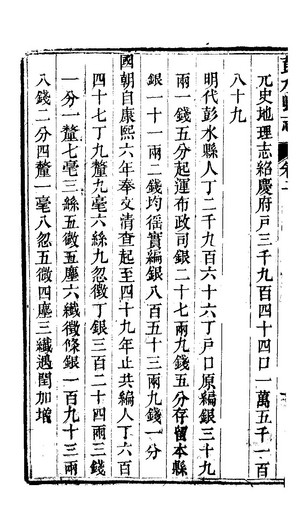 彭水縣志 卷二
元史地理志紹慶府戸三千九百四十四口一萬五千一百
八十九
明代彭水縣人丁二千九百六十六丁戸口原編銀三十九
兩一錢五分起運布政司銀二十七兩九錢五分存留本縣
銀一十一兩二錢均徭實編銀八百五十三兩九錢一分
國朝自康熙六年奉文清查起至四十九年止共編人丁六百
四十七丁九釐九毫六絲九忽徵丁銀三百二十四兩三錢
一分一釐七毫三絲五微五塵六纖徵條銀一百九十三兩
八錢二分四釐一毫八忽五微四塵三纖遇閏加增